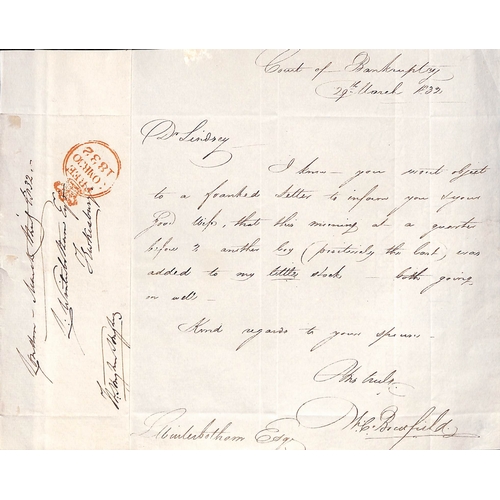 Court of Bankruptcy
29th March 1832
Dr Lindsey
I know you wont object
to a franked Letter to inform you & your
Good Wife, that this morning at a quarter
before 2 another boy (positively the last) was
added to my little stock - both going
on well -
Kind regards to your spouse -
Yrs truly
Winterbotham Esqr
London March thirty 1832
J. Winterbotham Esqr
Tewkesbury
FREE
30MR30
1832